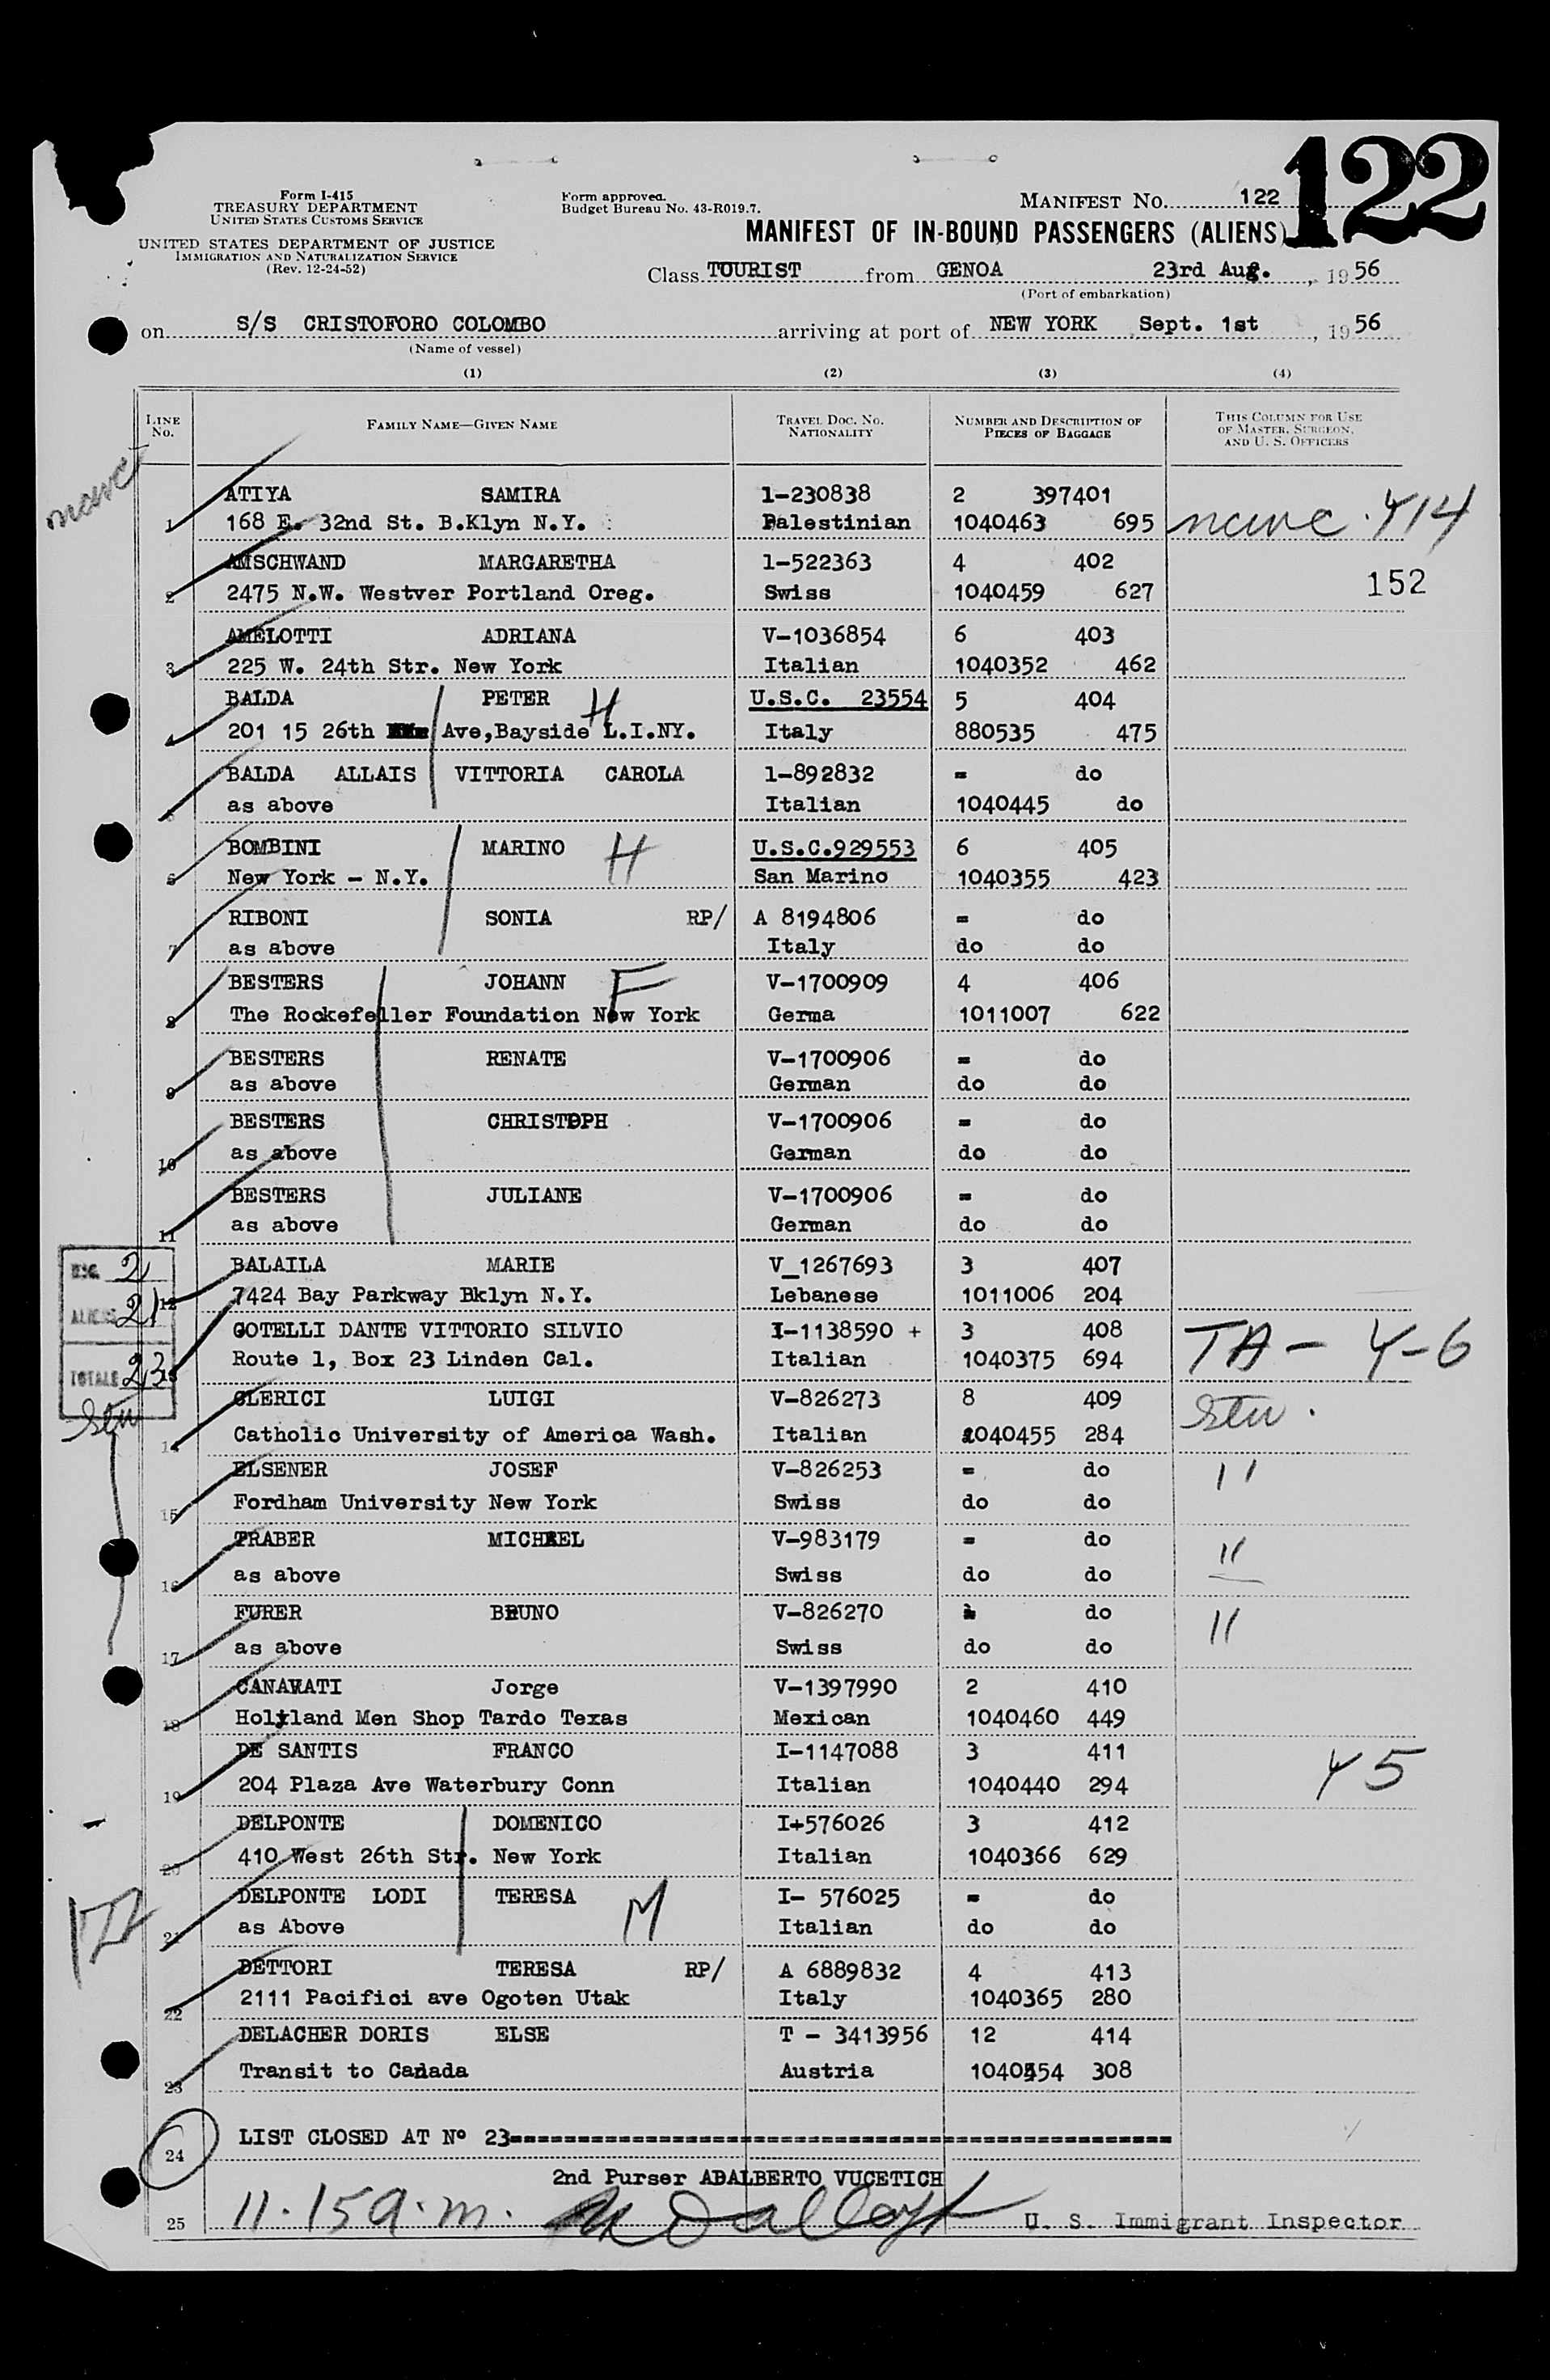 122
Form I-415
TREASURY DEPARTMENT
UNITED STATES CUSTOMS SERVICE
UNITED STATES DEPARTMENT OF JUSTICE
IMMIGRATION AND NATURALIZATION SERVICE
(Rev. 12-24-52)
Form approved.
Budget Bureau No. 43-R019.7.
MANIFEST NO. 122
MANIFEST OF IN-BOUND PASSENGERS (ALIENS)
Class TOURIST from GENOA 23rd Aug., 1956
(Port of embarkation)
on S/S CRISTOFORO COLOMBO arriving at port of NEW YORK Sept. 1st, 1956
(Name of vessel)
(1) (2) (3) (4)
LINE NO. FAMILY NAME—GIVEN NAME TRAVEL DOC. NO. NATIONALITY NUMBER AND DESCRIPTION OF PIECES OF BAGGAGE THIS COLUMN FOR USE OF MASTER, SURGEON, AND U. S. OFFICERS
ATIYA SAMIRA 1-230838 2 397401
1 168 E. 32nd St. B.Klyn N.Y. Palestinian 1040463 695
AMSCHWAND MARGARETHA 1-522363 4 402
2 2475 N.W. Westver Portland Oreg. Swiss 1040459 627 152
AMELOTTI ADRIANA V-1036854 6 403
3 225 W. 24th Str. New York Italian 1040352 462
BALDA PETER H U.S.C. 23554 5 404
4 201 15 26th Ave,Bayside L.I.NY. Italy 880535 475
BALDA ALLAIS VITTORIA CAROLA 1-892832 = do
5 as above Italian 1040445 do
BOMBINI MARINO H U.S.C.929553 6 405
6 New York - N.Y. San Marino 1040355 423
RIBONI SONIA RP/ A 8194806 = do
7 as above Italy do do
BESTERS JOHANN F V-1700909 4 406
8 The Rockefeller Foundation New York Germa 1011007 622
BESTERS RENATE V-1700906 = do
9 as above German do do
BESTERS CHRISTOPH V-1700906 = do
10 as above German do do
BESTERS JULIANE V-1700906 = do
11 as above German do do
BALAILA MARIE V_1267693 3 407
12 7424 Bay Parkway Bklyn N.Y. Lebanese 1011006 204
GOTELLI DANTE VITTORIO SILVIO I-1138590 + 3 408
13 Route 1, Box 23 Linden Cal. Italian 1040375 694 TA - Y-6
CLERICI LUIGI V-826273 8 409 Stu.
14 Catholic University of America Wash. Italian 1040455 284
ELSENER JOSEF V-826253 = do "
15 Fordham University New York Swiss do do
TRABER MICHAEL V-983179 = do "
16 as above Swiss do do
FURER BRUNO V-826270 do "
17 as above Swiss do do
Jorge V-1397990 2 410
18 Holyland Men Shop Tardo Texas Mexican 1040460 449
DE SANTIS FRANCO I-1147088 3 411
19 204 Plaza Ave Waterbury Conn Italian 1040440 294 Y5
DELPONTE DOMENICO I+576026 3 412
20 410 West 26th Str. New York Italian 1040366 629
DELPONTE LODI TERESA M I- 576025 = do
21 as Above Italian do do
DETTORI TERESA RP/ A 6889832 4 413
22 2111 Pacifici ave Ogoten Utak Italy 1040365 280
DELACHER DORIS ELSE T - 3413956 12 414
23 Transit to Canada Austria 308
24 LIST CLOSED AT Nº 23
2nd Purser ADALBERTO VUCETICH
25 11.15 a.m. U. S. Immigrant Inspector
USC 2
ALIENS 21
TOTALE 23
Stu